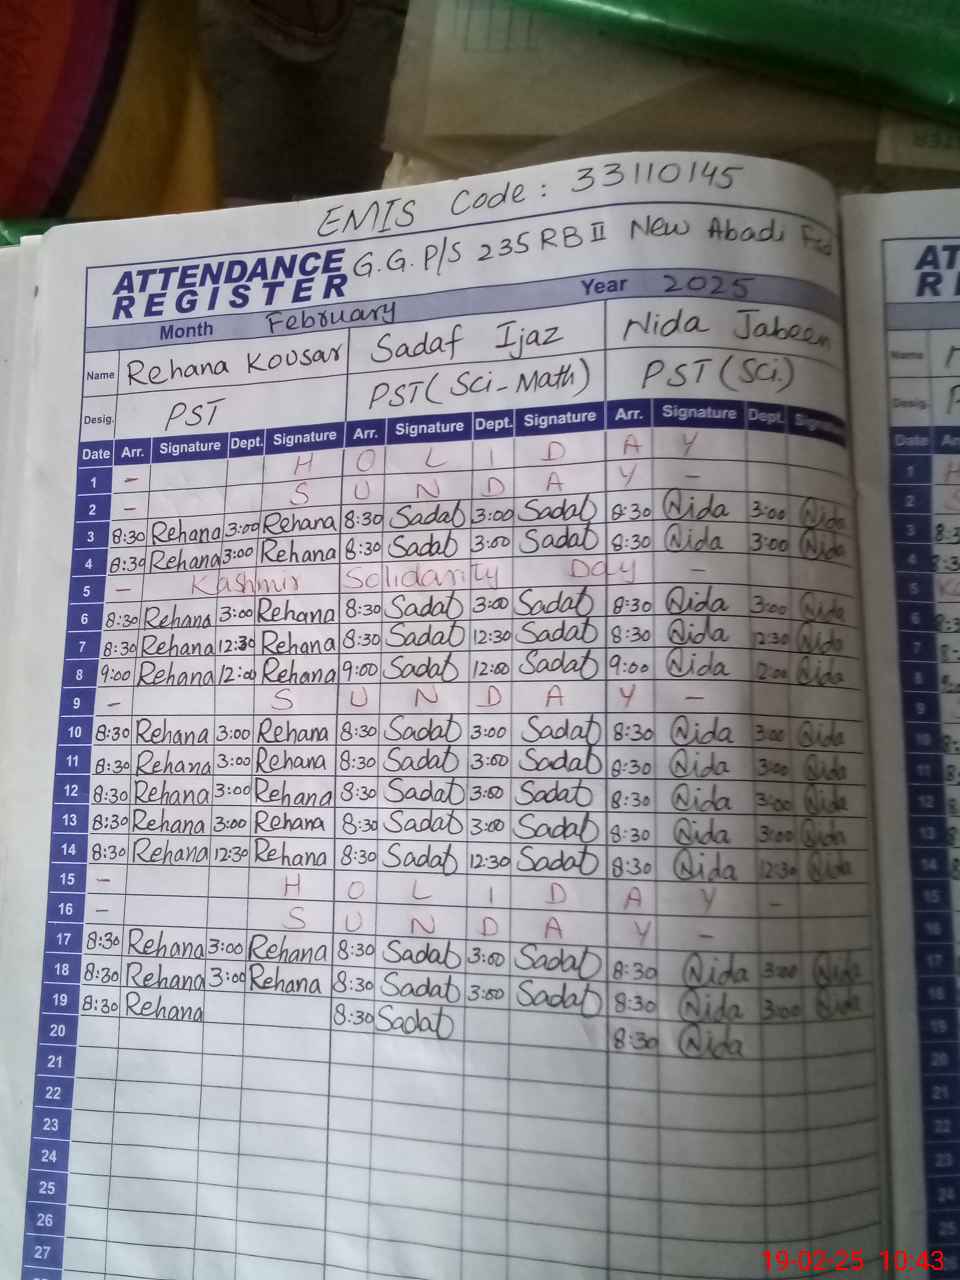 EMIS Code : 33110145
ATTENDANCE REGISTER G.G.P/S 235 RB II New Abadi Fsd
Month February Year 2025
Name Rehana Kousar Sadaf Ijaz Nida Jabeen
Desig. PST PST (Sci-Math) PST (Sci.)
Date Arr. Signature Dept. Signature Arr. Signature Dept. Signature Arr. Signature Dept. Signature
1 - H O L I D A Y
2 - S U N D A Y -
3 8:30 Rehana 3:00 Rehana 8:30 Sadaf 3:00 Sadaf 8:30 Nida 3:00 Nida
4 8:30 Rehana 3:00 Rehana 8:30 Sadaf 3:00 Sadaf 8:30 Nida 3:00 Nida
5 - Kashmir Solidarity Day -
6 8:30 Rehana 3:00 Rehana 8:30 Sadaf 3:00 Sadaf 8:30 Nida 3:00 Nida
7 8:30 Rehana 12:30 Rehana 8:30 Sadaf 12:30 Sadaf 8:30 Nida 12:30 Nida
8 9:00 Rehana 12:00 Rehana 9:00 Sadaf 12:00 Sadaf 9:00 Nida 12:00 Nida
9 - S U N D A Y -
10 8:30 Rehana 3:00 Rehana 8:30 Sadaf 3:00 Sadaf 8:30 Nida 3:00 Nida
11 8:30 Rehana 3:00 Rehana 8:30 Sadaf 3:00 Sadaf 8:30 Nida 3:00 Nida
12 8:30 Rehana 3:00 Rehana 8:30 Sadaf 3:00 Sadaf 8:30 Nida 3:00 Nida
13 8:30 Rehana 3:00 Rehana 8:30 Sadaf 3:00 Sadaf 8:30 Nida 3:00 Nida
14 8:30 Rehana 12:30 Rehana 8:30 Sadaf 12:30 Sadaf 8:30 Nida 12:30 Nida
15 - H O L I D A Y -
16 - S U N D A Y -
17 8:30 Rehana 3:00 Rehana 8:30 Sadaf 3:00 Sadaf 8:30 Nida 3:00 Nida
18 8:30 Rehana 3:00 Rehana 8:30 Sadaf 3:00 Sadaf 8:30 Nida 3:00 Nida
19 8:30 Rehana 8:30 Sadaf 8:30 Nida
20
21
22
23
24
25
26
27
19-02-25 10:43